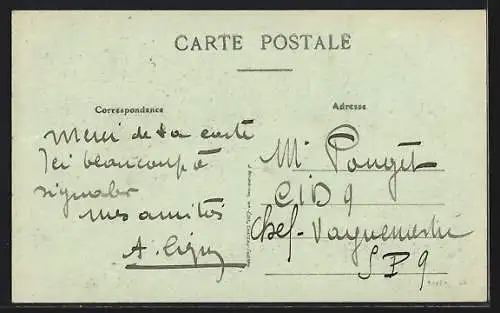 CARTE POSTALE
Correspondance
Merci de ta carte
Ici beaucoup à
signaler
Mes amitiés
Adresse
Mr Pouget
CID 9
Chef-Vaguemestre
SP 9